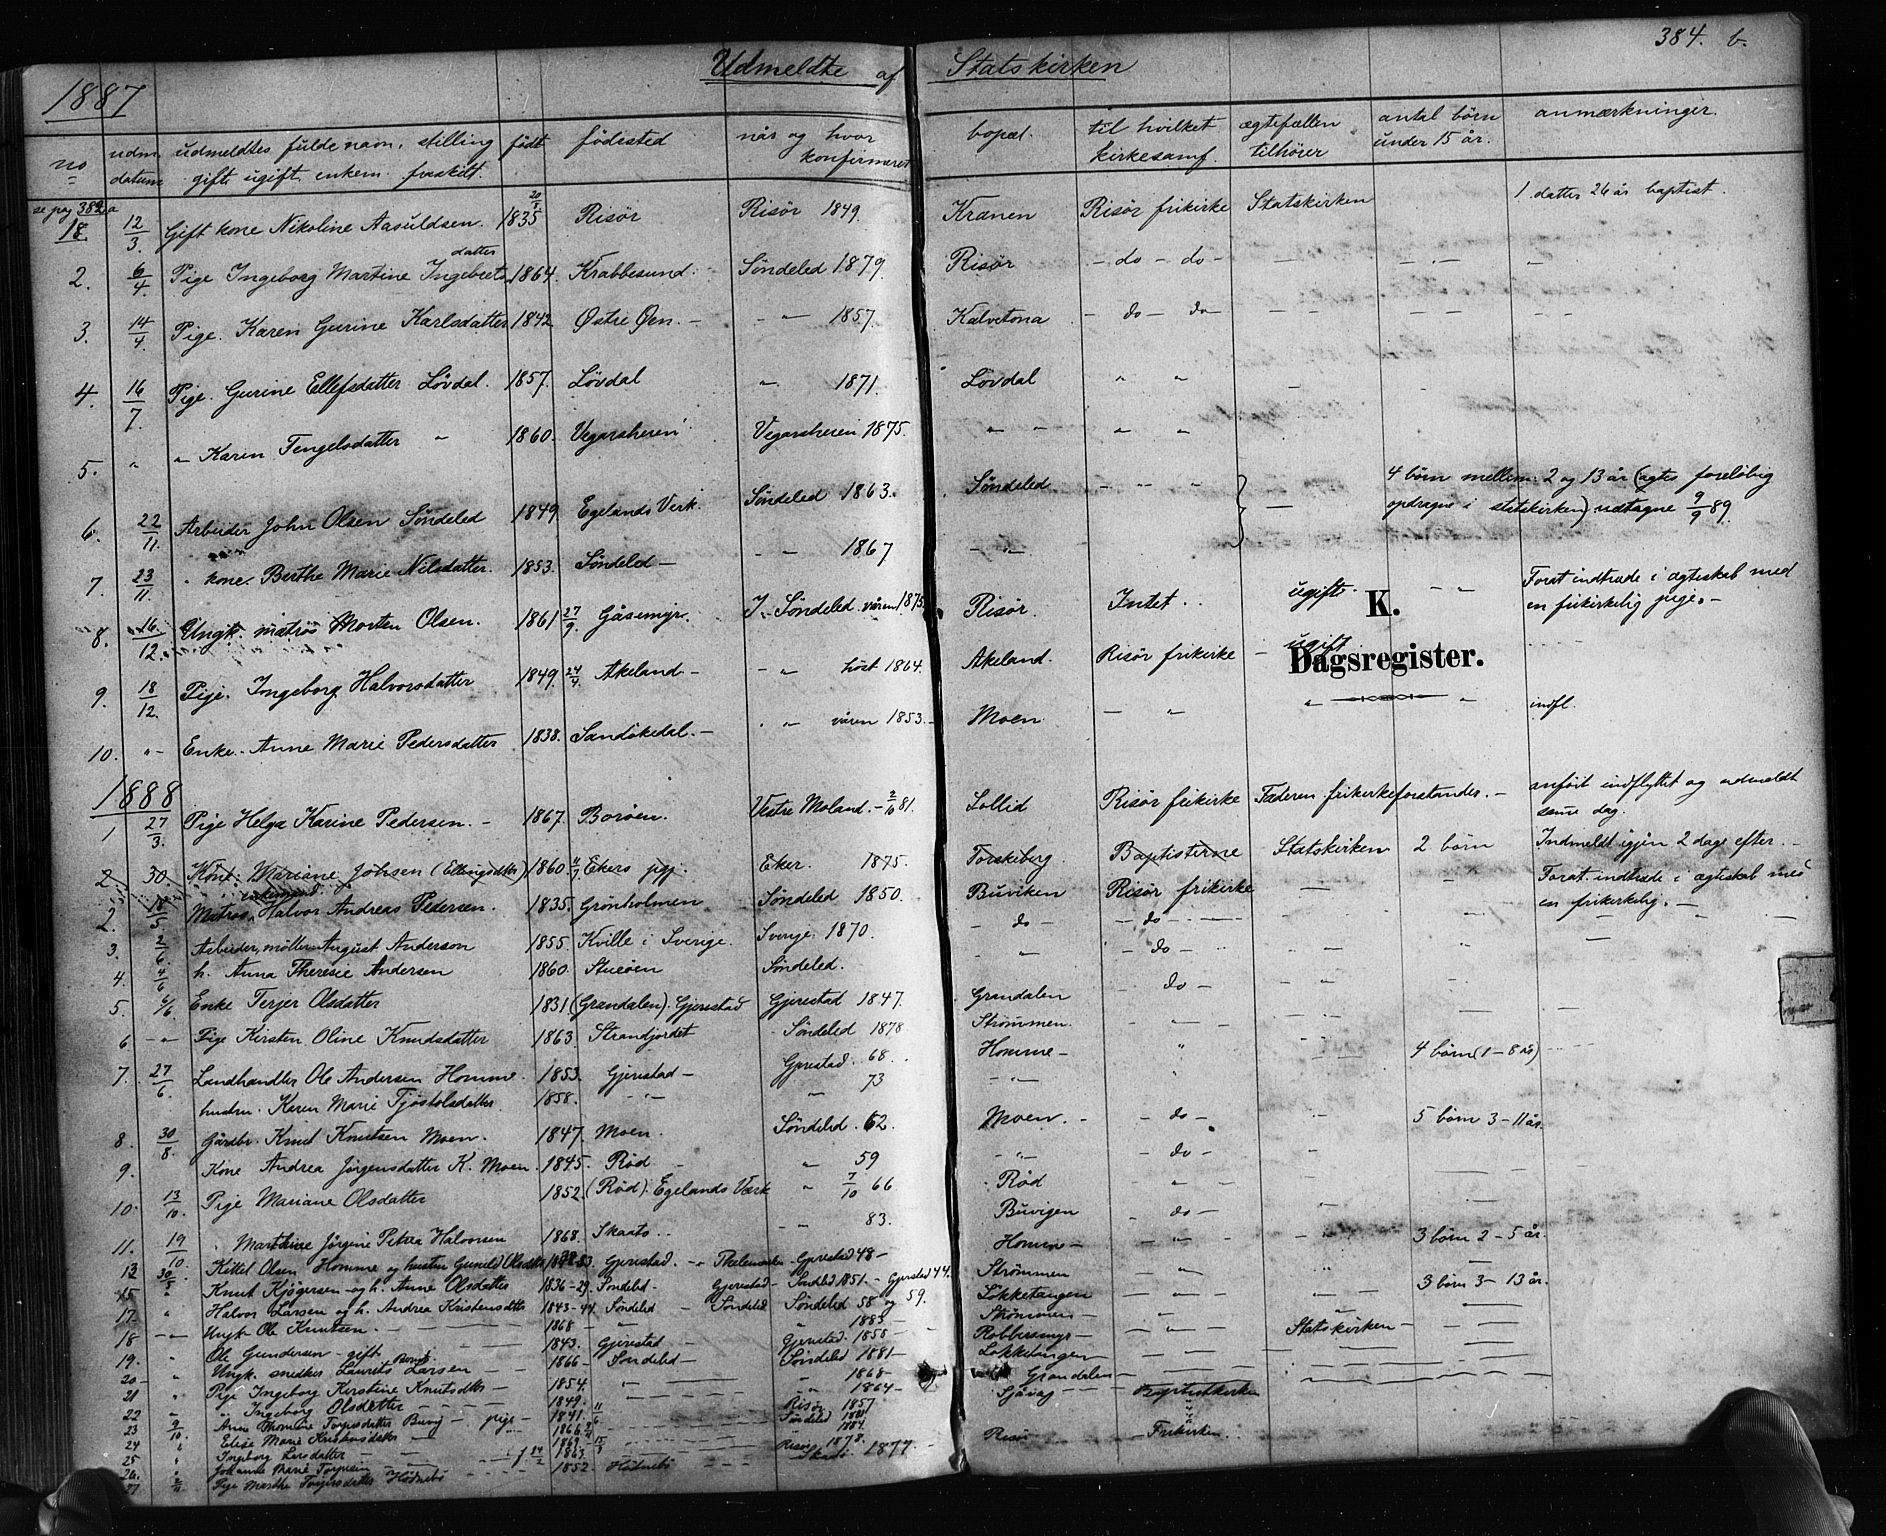 384. b.
1887 Udmeldte af Statskirken
no udm. datum udmeldtes fulde navn, stilling gift, ugift, enkem. fraskilt. født fødested når og hvor konfirmeret bopæl. til hvilket kirkesamf. ægtefællen tilhører antal børn under 15 år. anmærkninger.
se pag 382 a
18. 12/3. Gift kone Nikoline Aasuldsen. 1835 20/8 Risør Risør 1849. Kranen Risør frikirke Statskirken 1 datter 26 år baptist.
2. 6/4. Pige Ingeborg Martine Ingebrets datter 1864. Krabbesund. Søndeled 1879. Risør - do - do -
3. 14/4. Pige. Karen Gurine Karlsdatter 1842 Østre Øen. - - " - 1857. Kalvetona - do - do
4. 16/7. Pige. Gurine Ellefsdatter Lövdal. 1857. Lövdal " 1871. Lövdal " "
5. " " Karen Tengelsdatter " 1860. Vegarsheien Vegarsheien 1875. " " " "
6. 22/11. Arbeider John Olsen Søndeled 1849 Egelands Verk. Søndeled 1863. Søndeled - " " 4 børn mellem 2 og 13 år (agtes foreløbig
opdragne i statskirken) udtagne 9/9 89.
7. 23/11. " kone. Berthe Marie Nilsdatter. 1853. Søndeled - - " 1867 - " -
8. 16/12. Ungk. matros Morten Olsen. 1861 27/9 Gåsemyr. I. Søndeled. våren 1875. Risør. Intet. ugift. " " Forat indtræde i ægteskab med
en frikirkelig pige. -
K.
Dagsregister.
9. 18/12. Pige. Ingeborg Halvorsdatter 1849. 24/4 Akeland - - " høst 1864. Akeland. Risør frikirke - ugift
10. " Enke. Anne Marie Pedersdatter 1838. Sandøkedal. - " " våren 1853. - Moen. - " " " indfl.
1888
1 27/3. Pige Helga Karine Pedersen. - 1867. Borøen. Vestre Moland. - 2/10 81. Lollid Risør frikirke Faderen frikirkeforstander. - anført indflyttet og udmeldt
same dag.
2 30 Kone. Mariane Johsen (Ellingsdtr) 1860. Ekers Eker. 1875. Torskeberg. Baptisterne Statskirken 2 børn Indmeldt igjen 2 dage efter. -
2. Matros Halvor Andreas Pedersen. 1835. Grønholmen Søndeled 1850. Buviken Risør frikirke - " Forat indtræde i ægteskab med
en frikirkelig. -
3. 2/6 Arbeider, møller August Anderson 1855. Kville i Sverige. Sverige. 1870. do - - do -
4. 4/6 h. Anna Theresie Andersen 1860. Stueøen Søndeled. " - do - "
5. 6/6 Enke Terjer Olsdatter 1831 (Grandalen) Gjerestad Gjerestad 1847. Grandalen - do - "
6. - " Pige Kirsten Oline Knudsdatter 1863. Strandjordet Søndeled 1878 Strømmen. - " -
7. 27/6 Landhandler Ole Andersen Homme. 1853. Gjerestad - Gjerestad. 68. Homme - " 4 børn (1 - 8 år)
hustru. Karen Marie Tjøstolsdatter. 1858. - " - 73 - " -
8. 30/8. Gårdbr. Knut Knutsen Moen. 1847. Moen. Søndeled. 62. Moen. - - do - 5 børn 3 - 11 år.
9. Kone Andrea Jørgensdatter K. Moen. 1845. Rød - " 59 - " - - do -
10. 13/10. Pige Mariane Olsdatter 1852. (Rød). Egelands Værk " 7/10 66 Rød " -
11. 19/10 " Marthine Jörgine Petrea Halvorsen 1868. Skaato. - " 83. Buvigen - do -
13 Kittel Olsen Homme og hustru Gunild Olsdtr Gjerestad. Gjerestad 48 - Homme - - " - 3 børn 2 - 5 år.
15 Knut Kjøgersen og h. Anne Olsdatter 1836 - 29 Søndeled. Gjerestad Søndled 1851. - Gjerstad 44. Strømmen - " -
17. " Halvor Larsen og h. Andrea Kristensdtr 1843 - 44 Søndeled - Søndeled Søndeled 58 og 59. Lokketangen - " - 3 børn 3 - 13 år.
18 - " - Ungk. Ole Knutsen. - 1868 - " " 1883 - Strømmen -
19. " Ole Gundersen - gift 1843. Gjerestad - Gjerestad. 1858 - Robbersmyr - - " - Statskirken -
20 - " Ungk. snedker Laurits Larsen - 1866 - Søndeled - Søndeled 1881 - Lokketangen -
21 " Pige Ingeborg Kirstine Knutsdtr - 1854. " 1868 - Grandalen -
22 " " Ingeborg Olsdatter 1849. " 1864 - Sjåvåg - Baptistkirken
23 9/10. Anne Thomine Torjusdatter Buvig - pige - 1841. Risør 1857
24 " Elise Marie Kristiansdatter Søndeled
25 " Ingeborg Larsdatter 1863. Risør 1878. Risør Frikirken.
26. " Johanne Marie 1877. -
27 Pige Marthe Torjusdatter Hödnebö 1852. Hödnebö